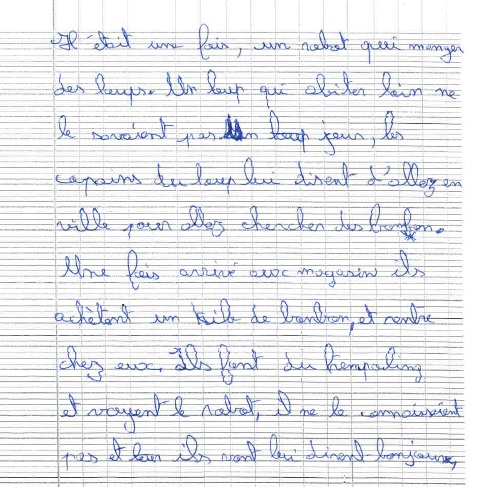 Il était une fois, un robot qui manger
des loups. Un loup qui abiter loin ne
le savaient pas Un loup jour, les
copains du loup lui disent d'allez en
ville pour allez chercher des bonbon.
Une fois arrivé aux magasin ils
achètent un kilo de bonbon, et rentre
chez eux. Ils font du trempoling
et voyent le robot, il ne le connaissaient
pas et ils vont lui dirent bonjour,